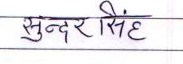 सुन्दर सिंह